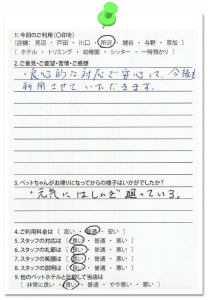 1.今回のご利用(〇印を)
[店舗: 見沼 ・ 戸田 ・ 川口 ・ 所沢 ・ 越谷 ・ 与野 ・ 草加 ]
[ ホテル ・ トリミング ・ 幼稚園 ・ シッター ・ 一時預かり ]
2.ご意見・ご要望・苦情・ご感想
・良心的な対応で安心して、今後も
利用させていただきます。
3.ペットちゃんがお帰りになってからの様子はいかがでしたか?
・元気にはしゃぎ廻っている。
4.ご利用料金は [ 高い ・ 普通 ・ 安い ]
5.スタッフの対応は [ 良い ・ 普通 ・ 悪い ]
6.スタッフの笑顔は [ 良い ・ 普通 ・ 悪い ]
7.スタッフの身嗜は [ 良い ・ 普通 ・ 悪い ]
8.スタッフの説明は [ 良い ・ 普通 ・ 悪い ]
9.他のペットホテルと比較して当店は
[ 非常に良い ・ 良い ・ 普通 ・ 悪い ]